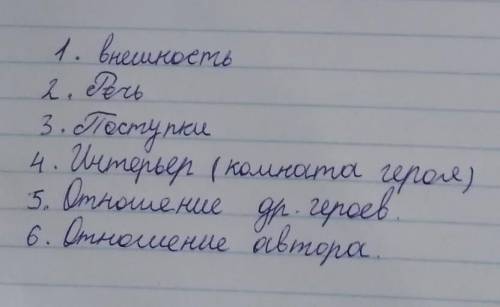 1. внешность
2. Речь
3. Поступки
4. Интерьер (комната героя)
5. Отношение др. героев.
6. Отношение автора.